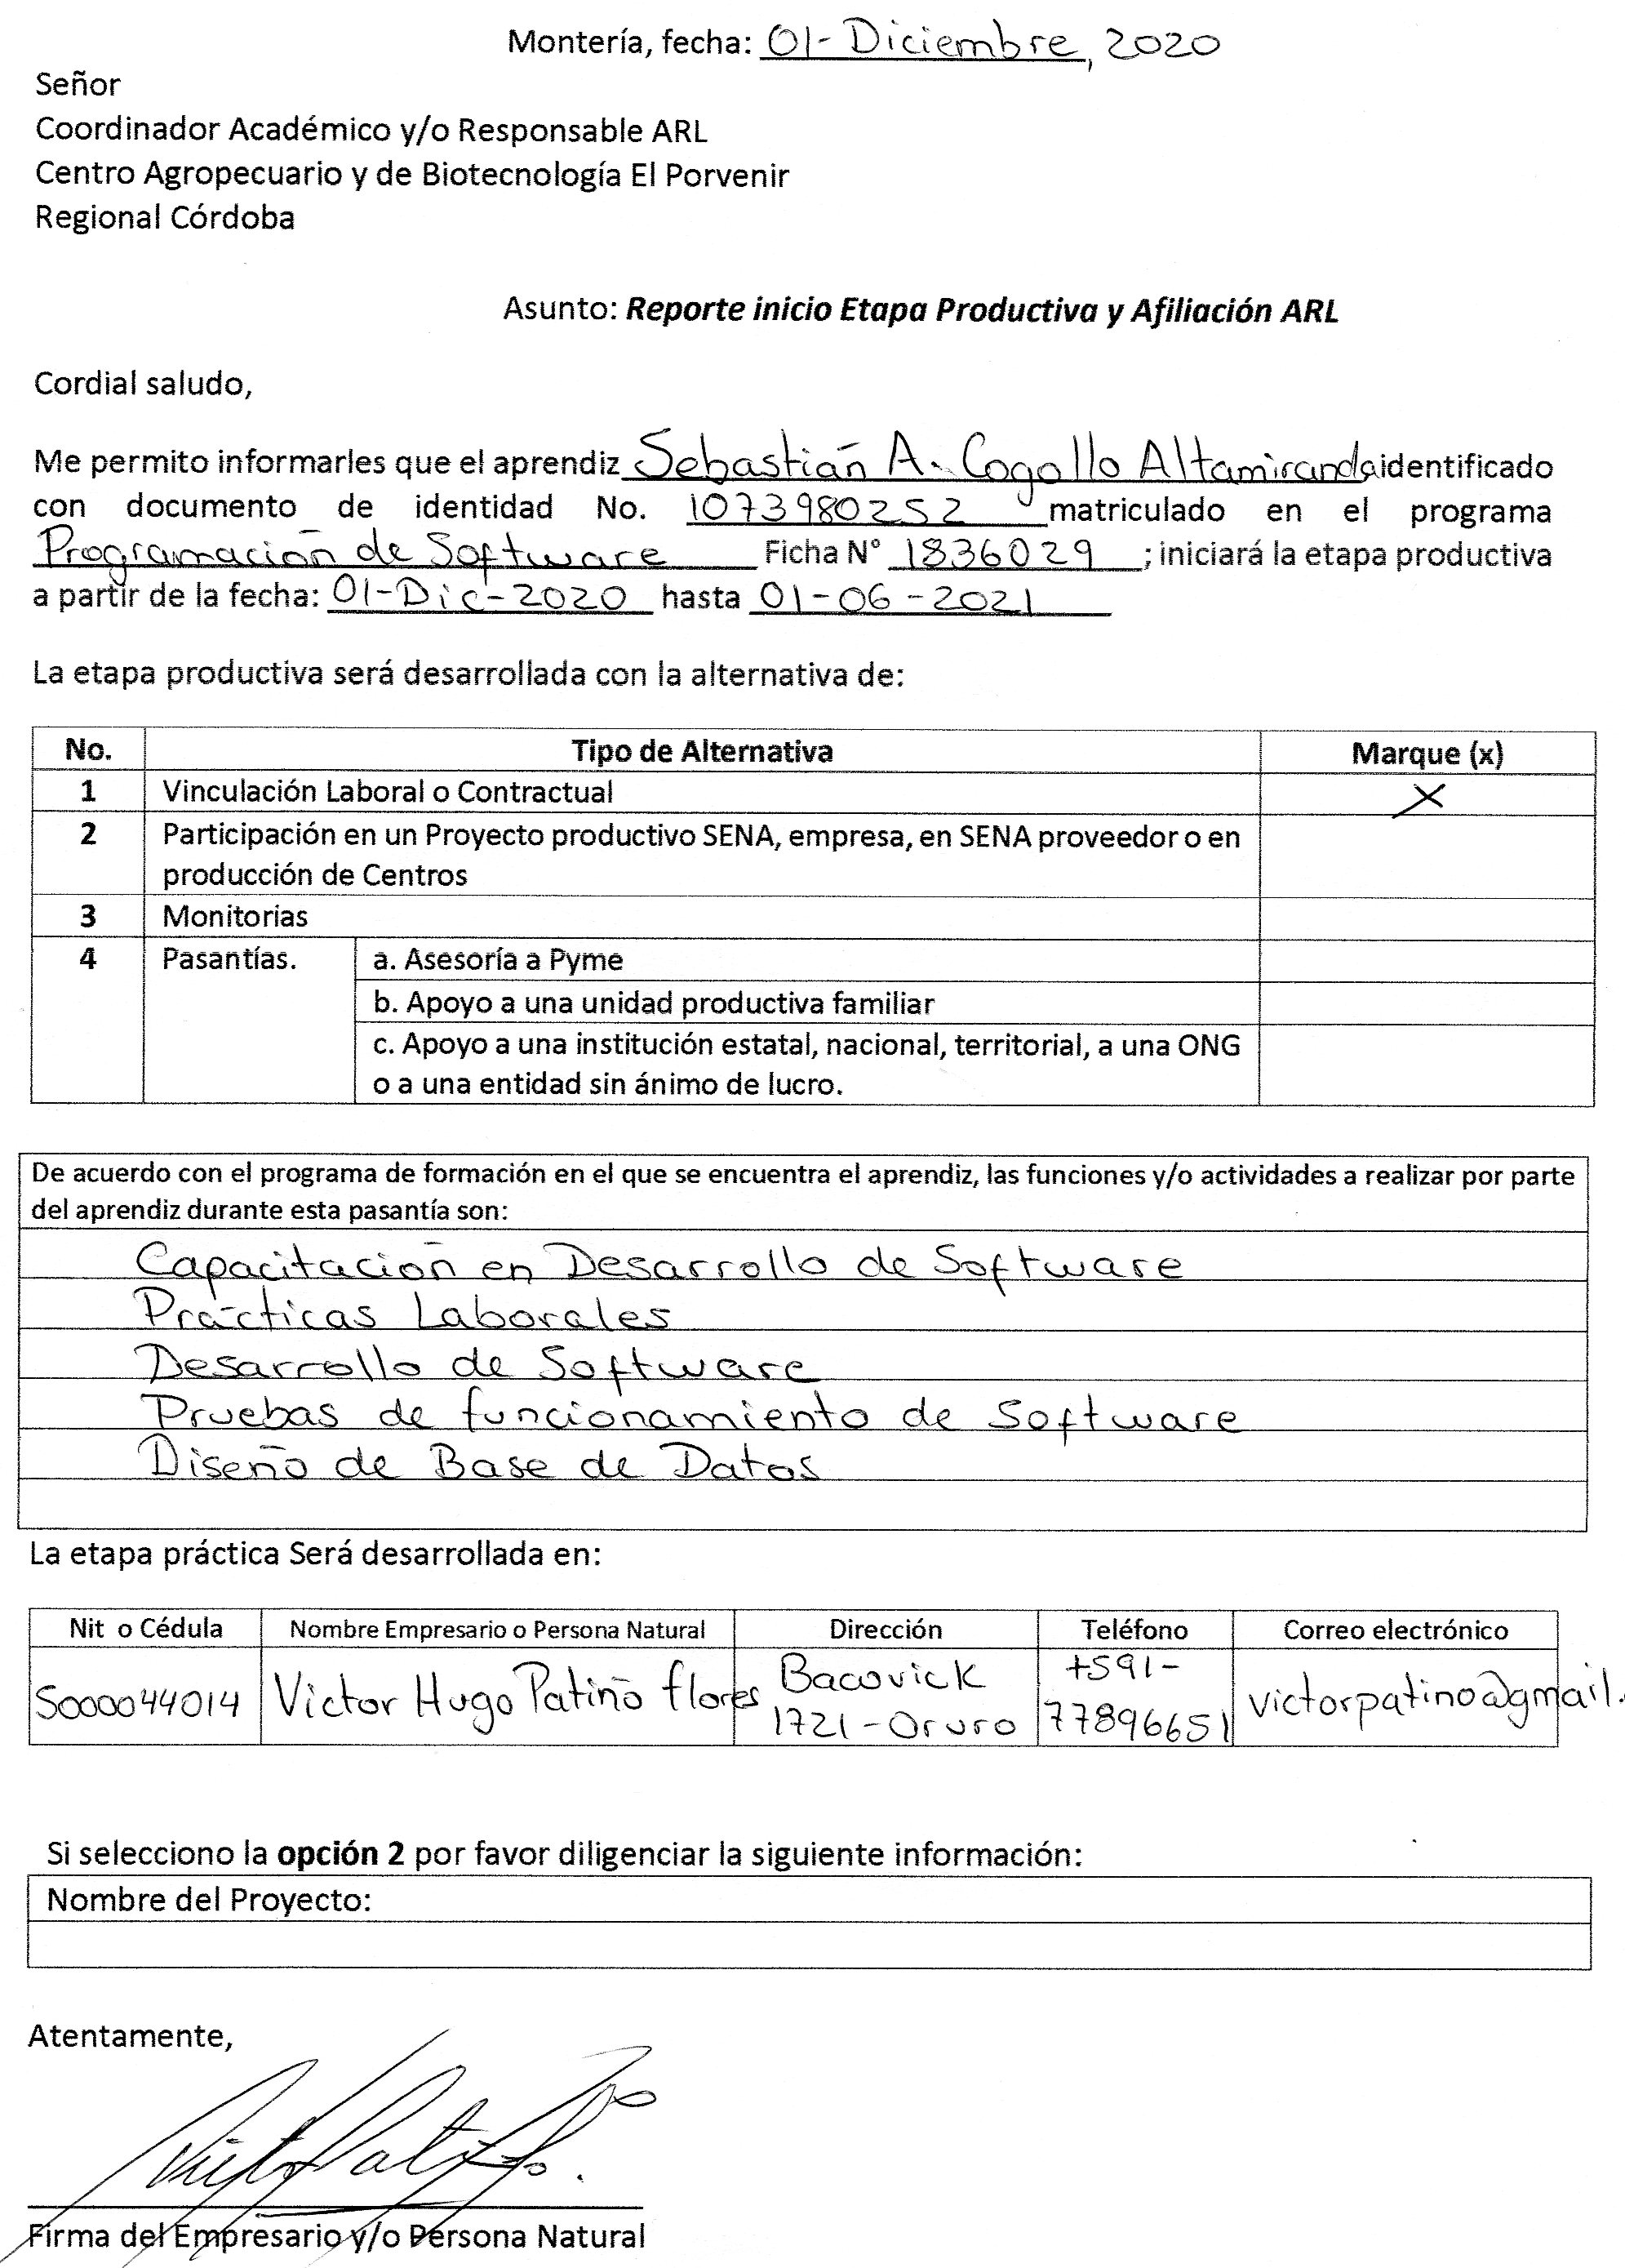 Montería, fecha: 01-Diciembre, 2020
Señor
Coordinador Académico y/o Responsable ARL
Centro Agropecuario y de Biotecnología El Porvenir
Regional Córdoba
Asunto: Reporte inicio Etapa Productiva y Afiliación ARL
Cordial saludo,
Me permito informarles que el aprendiz Sebastián A. Cogollo Altamiranda identificado
con documento de identidad No. 1073980252 matriculado en el programa
Programación de Software Ficha N° 1836029 ; iniciará la etapa productiva
a partir de la fecha: 01-Dic-2020 hasta 01-06-2021
La etapa productiva será desarrollada con la alternativa de:
No. Tipo de Alternativa Marque (x)
1 Vinculación Laboral o Contractual X
2 Participación en un Proyecto productivo SENA, empresa, en SENA proveedor o en
producción de Centros
3 Monitorias
4 Pasantías. a. Asesoría a Pyme
b. Apoyo a una unidad productiva familiar
c. Apoyo a una institución estatal, nacional, territorial, a una ONG
o a una entidad sin ánimo de lucro.
De acuerdo con el programa de formación en el que se encuentra el aprendiz, las funciones y/o actividades a realizar por parte
del aprendiz durante esta pasantía son:
Capacitación en Desarrollo de Software
Prácticas Laborales
Desarrollo de Software
Pruebas de funcionamiento de Software
Diseño de Base de Datos
La etapa práctica Será desarrollada en:
Nit o Cédula Nombre Empresario o Persona Natural Dirección Teléfono Correo electrónico
5000044014 Victor Hugo Patiño flores Bacovick 1721-Oruro +591-77896651 victorpatino@gmail.
Si selecciono la opción 2 por favor diligenciar la siguiente información:
Nombre del Proyecto:
Atentamente,
Firma del Empresario y/o Persona Natural